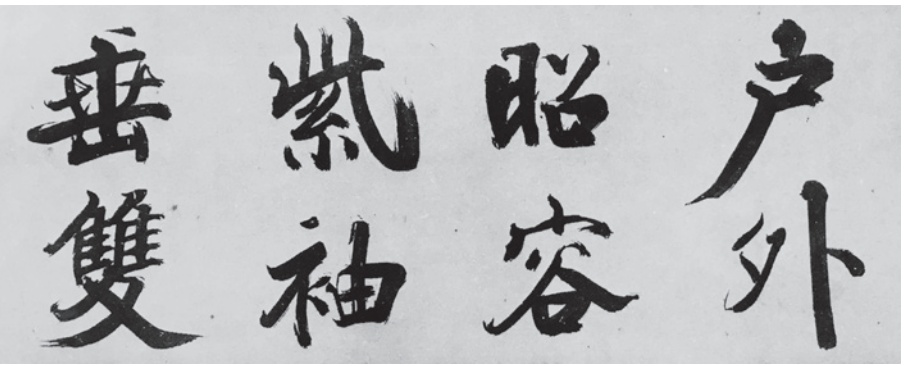 户外
昭容
紫袖
垂雙